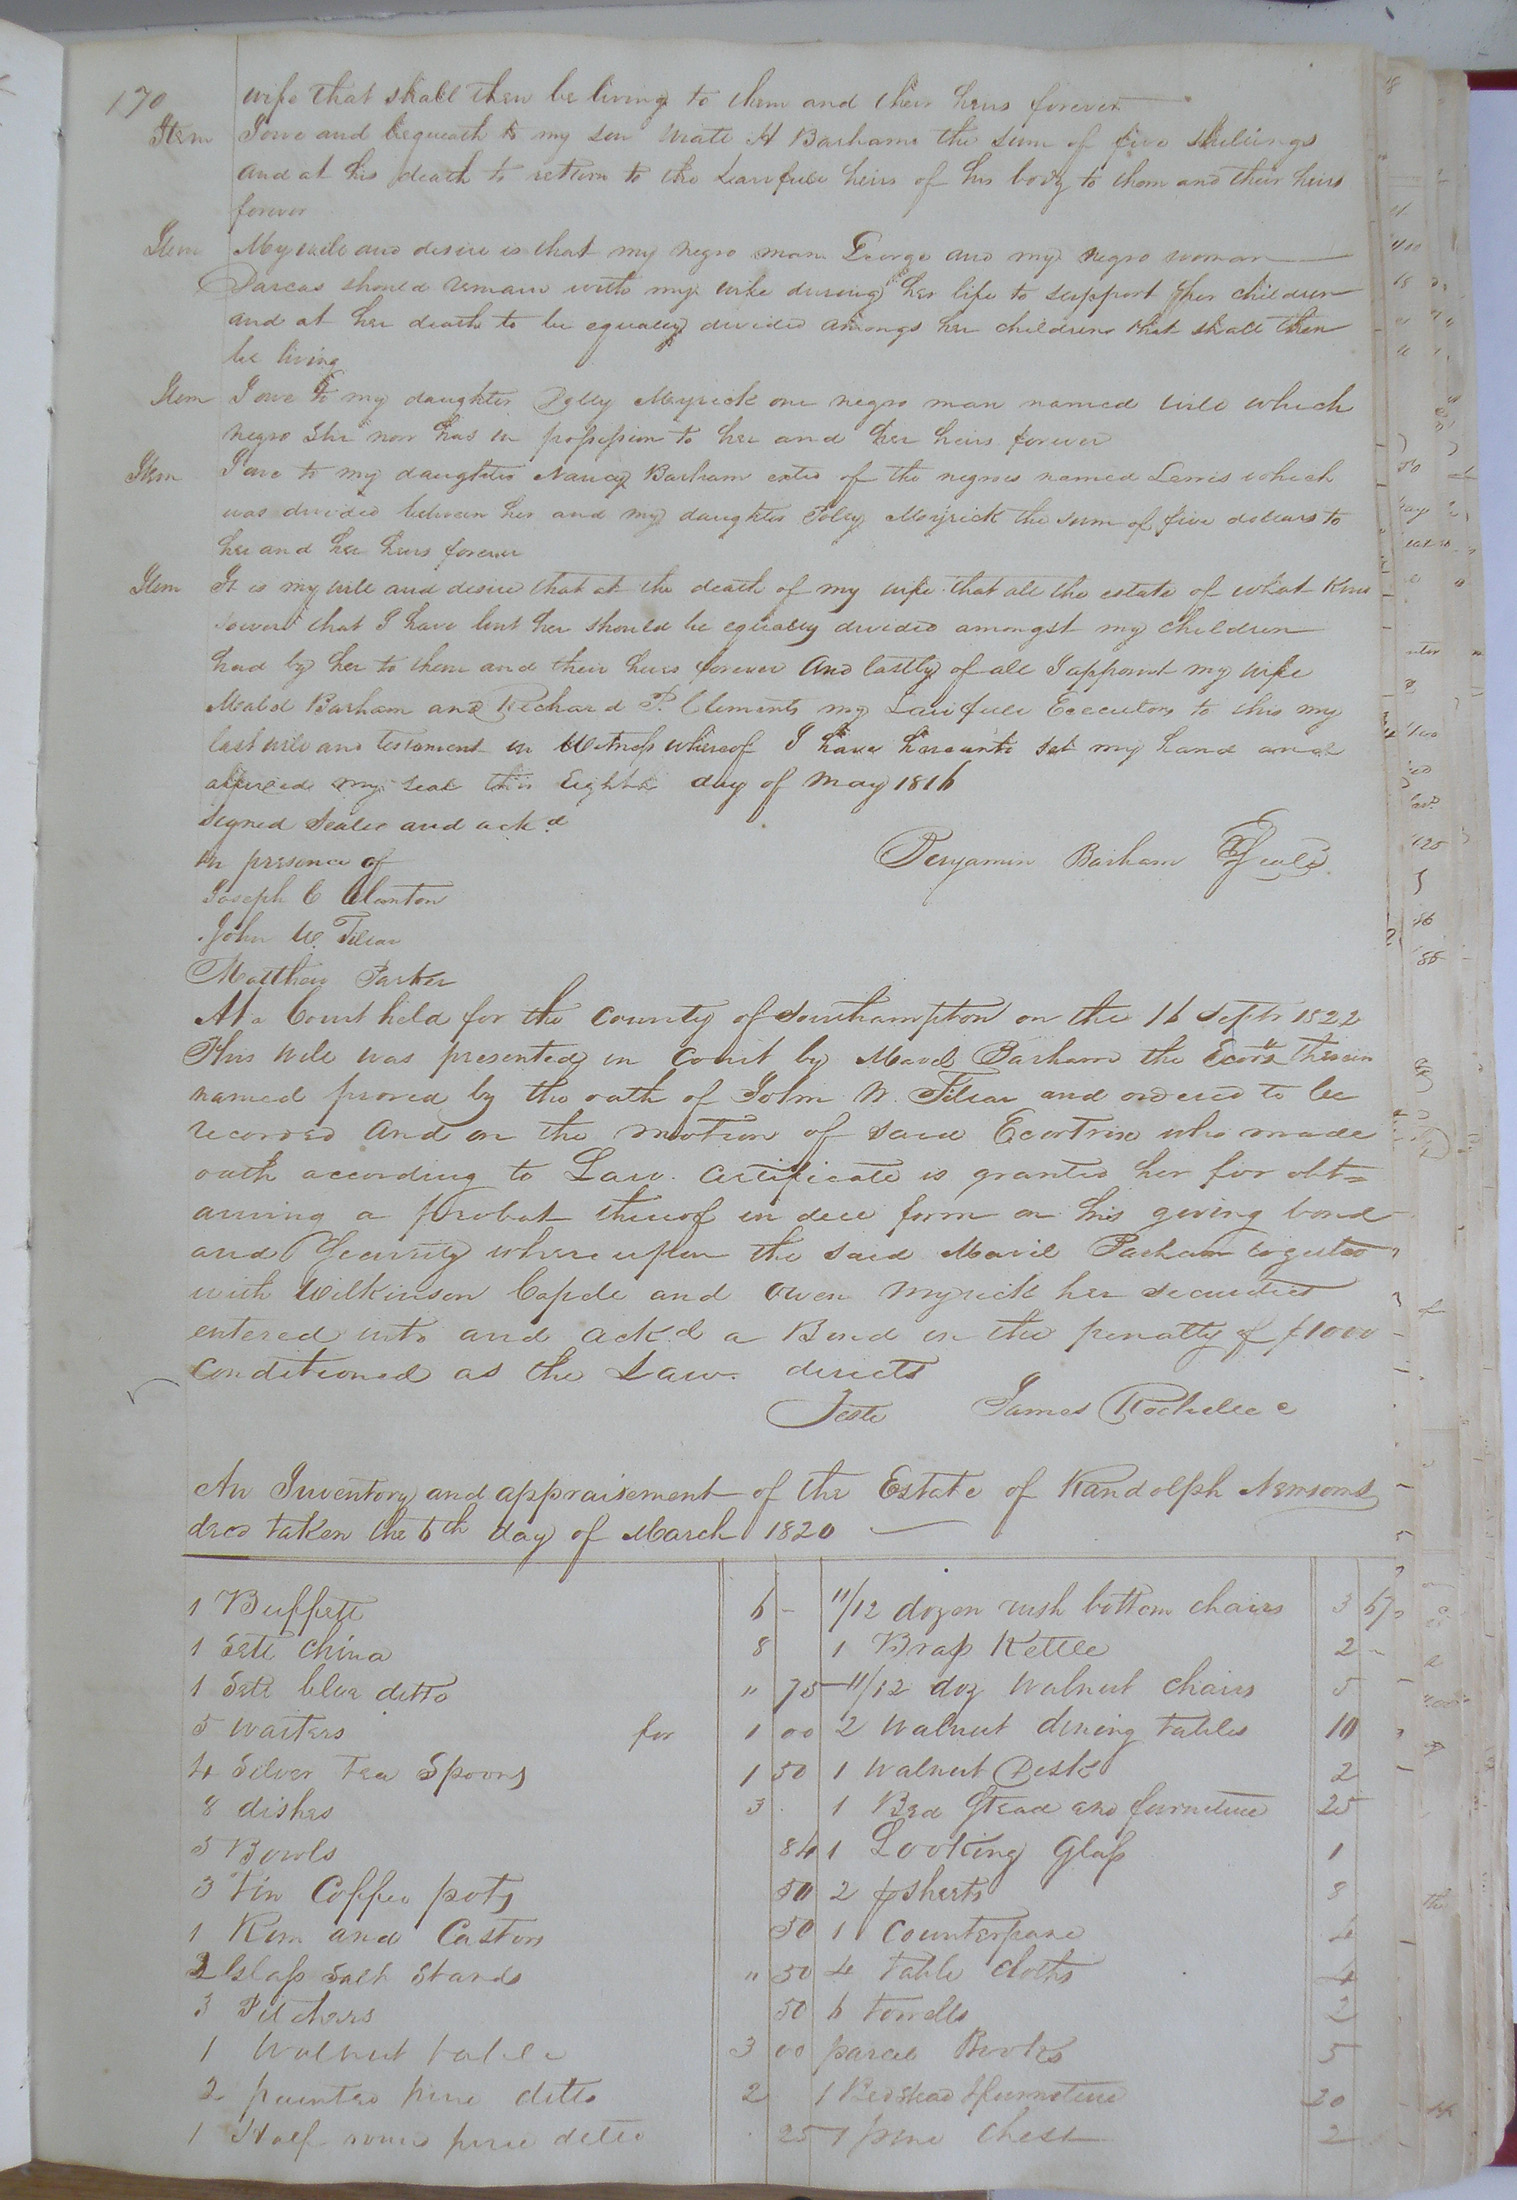 170
wife that shall then be living to them and their heirs forever
Item I give and bequeath to my son Wiatt H Barham the sum of five shillings
and at his death to return to the Lawfull heirs of his body to them and their heirs
forever
Item My will and desire is that my negro man George and my negro woman
Darcas should remain with my wife during her life to support her children
and at her death to be equally divided amongs her children that shall then
be living
Item I give to my daughter Polly Meyrick one negro man named Will which
negro she now has in possession to her and her heirs forever
Item I give to my daughter Nancy Barham of the negroes named Lewis which
was divided between her and my daughter Polly Meyrick the sum of five dollars to
her and her heirs forever
Item It is my will and desire that at the death of my wife that all the estate of what kind
soever that I have lent her should be equally divided amongst my children
had by her to them and their heirs forever And lastly of all I appoint my wife
Barham and Richard P. Clements my Lawfull Executors to this my
last will and testament in Witness whereof I have hereunto set my hand and
affixed my seal this Eighth day of May 1816
Signed Sealed and ackd
in presence of
Benjamin Barham Seal
Joseph C Clanton
John W.
Matthew Parker
At a Court held for the County of Southampton on the 16 Septr 1822
This will was presented in Court by Barham the therein
named proved by the oath of John W. and ordered to be
recorded And on the motion of said Ecortrix who made
oath according to Law. Certificate is granted her for obt=
aining a probat thereof in due form on his giving bond
and Security whereupon the said together
with Wilkinson Capele and Owen Myrick her securities
entered into and ackd a Bond in the penalty of $1000
conditioned as the Law. directs
Teste James Rochelle c
An Inventory and appraisement of the Estate of Randolph Newsoms
decd taken the 6th day of March 1820
1 Buffett 6 - 11/12 dozen rush bottom chairs 3 67
1 Sett China 8 1 Brass Kettle 2 -
1 Sett blue ditto " 75 11/12 doz Walnut chairs 5
5 Waiters for 1 00 2 Walnut dining tables 10
4 Silver tea Spoons 1 50 1 Walnut Desk 2
8 dishes 3 1 Bed Stead and furniture 25
5 Bowls 84 1 Looking Glass 1
3 Tin Coffee pots 50 2 sheets 8
1 and Castors 50 1 Counterpane 4
2 Glass Salt Stands " 50 4 table cloths 4
3 Pitchers 50 6 towells 2
1 Walnut table 3 00 parcel Books 5
2 painted pine ditto 2 1 Bedstead & furniture 20
1 Half round pine ditto 25 1 pine Chest 2